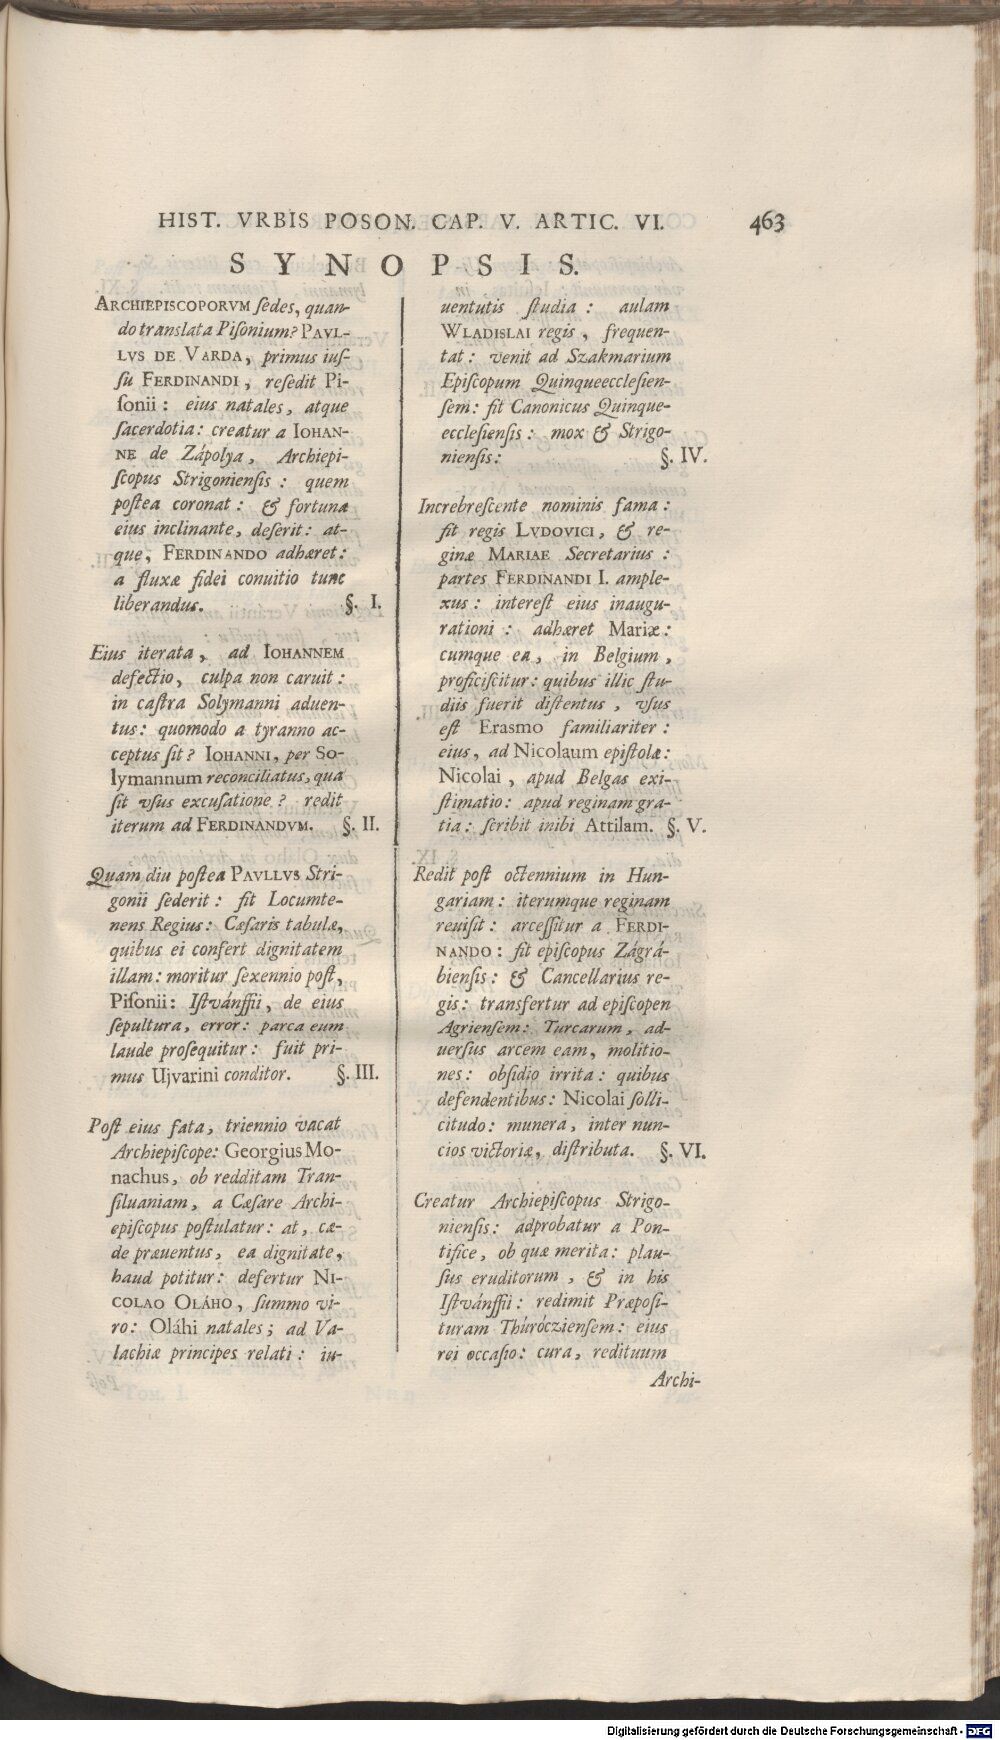 HIST. VRBIS POSON. CAP. V. ARTIC. VI. 463
SYNOPSIS.
ARCHIEPISCOPORVM ſedes, quan-
do translata Piſonium? PAVL-
LVS DE VARDA, primus iuſ-
ſu FERDINANDI, reſedit Pi-
ſonii: eius natales, atque
ſacerdotia: creatur a IOHAN-
NE de Zápolya, Archiepi-
ſcopus Strigonienſis: quem
poſtea coronat: & fortuna
eius inclinante, deſerit: at-
que, FERDINANDO adhæret:
a fluxæ fidei conuitio tunc
liberandus. §. I.
Eius iterata, ad IOHANNEM
defectio, culpa non caruit:
in caſtra Solymanni aduen-
tus: quomodo a tyranno ac-
ceptus ſit? IOHANNI, per So-
lymannum reconciliatus, qua
ſit vſus excuſatione? redit
iterum ad FERDINANDVM. §. II.
Quam diu poſtea PAVLLVS Stri-
gonii ſederit: fit Locumte-
nens Regius: Cæſaris tabulæ,
quibus ei confert dignitatem
illam: moritur ſexennio poſt,
Piſonii: Iſtvánffii, de eius
ſepultura, error: parca eum
laude proſequitur: fuit pri-
mus Ujvarini conditor. §. III.
Poſt eius fata, triennio vacat
Archiepiſcope: Georgius Mo-
nachus, ob redditam Tran-
ſiluaniam, a Cæſare Archi-
epiſcopus poſtulatur: at, cæ-
de præuentus, ea dignitate,
haud potitur: defertur NI-
COLAO OLÁHO, ſummo vi-
ro: Oláhi natales; ad Va-
lachiæ principes relati: iu-
uentutis ſtudia: aulam
WLADISLAI regis, frequen-
tat: venit ad Szakmarium
Epiſcopum Quinqueeccleſien-
ſem: fit Canonicus Quinque-
eccleſienſis: mox & Strigo-
nienſis: §. IV.
Increbreſcente nominis fama:
fit regis LVDOVICI, & re-
ginæ MARIAE Secretarius:
partes FERDINANDI I. ample-
xus: intereſt eius inaugu-
rationi: adhæret Mariæ:
cumque ea, in Belgium,
proficiſcitur: quibus illic ſtu-
diis fuerit diſtentus, vſus
eſt Erasmo familiariter:
eius, ad Nicolaum epiſtolæ:
Nicolai, apud Belgas exi-
ſtimatio: apud reginam gra-
tia: ſcribit inibi Attilam. §. V.
Redit poſt octennium in Hun-
gariam: iterumque reginam
reuiſit: arceſſitur a FERDI-
NANDO: fit epiſcopus Zágrá-
bienſis: & Cancellarius re-
gis: transfertur ad epiſcopen
Agrienſem: Turcarum, ad-
uerſus arcem eam, molitio-
nes: obſidio irrita: quibus
defendentibus: Nicolai ſolli-
citudo: munera, inter nun-
cios victoriæ, diſtributa. §. VI.
Creatur Archiepiſcopus Strigo-
nienſis: adprobatur a Pon-
tifice, ob quæ merita: plau-
ſus eruditorum, & in his
Iſtvánffii: redimit Præpoſi-
turam Thúróczienſem: eius
rei occaſio: cura, redituum
Archi-
Digitalisierung gefördert durch die Deutsche Forschungsgemeinschaft - DFG